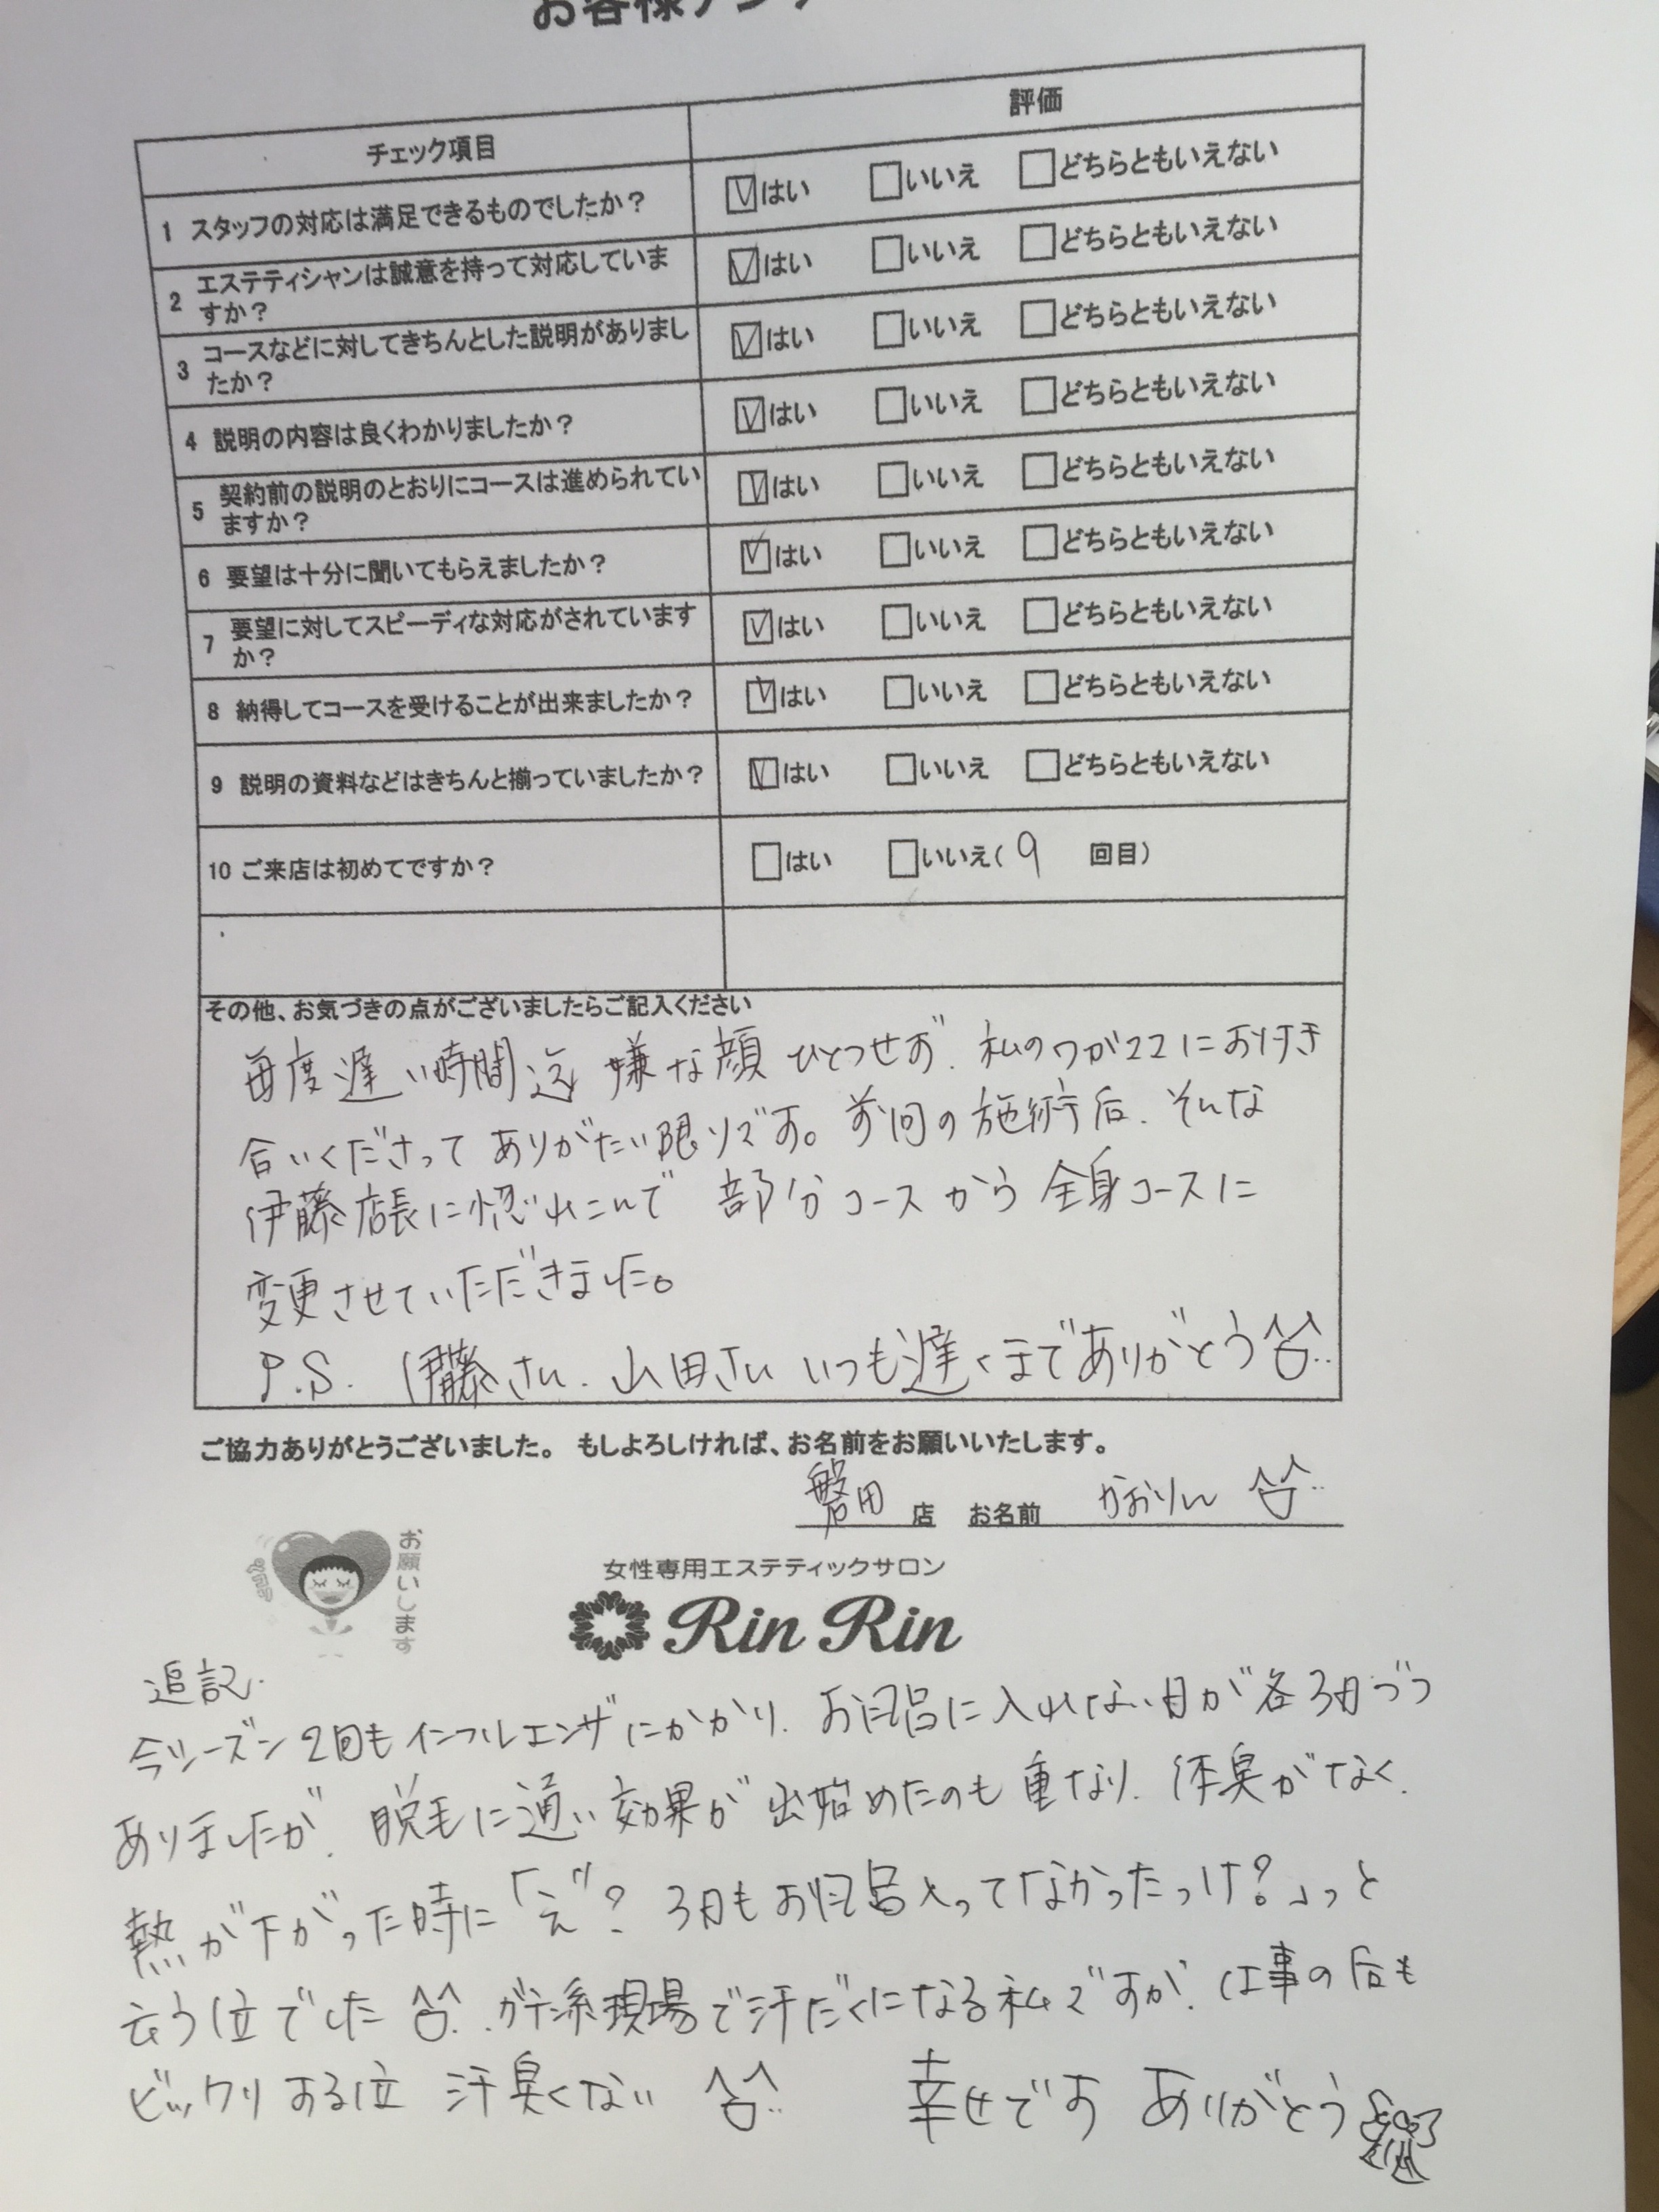 お客様アン
チェック項目 評価
1 スタッフの対応は満足できるものでしたか？ ☑はい □いいえ □どちらともいえない
2 エステティシャンは誠意を持って対応していま
すか？ ☑はい □いいえ □どちらともいえない
3 コースなどに対してきちんとした説明がありまし
たか？ ☑はい □いいえ □どちらともいえない
4 説明の内容は良くわかりましたか？ ☑はい □いいえ □どちらともいえない
5 契約前の説明のとおりにコースは進められてい
ますか？ ☑はい □いいえ □どちらともいえない
6 要望は十分に聞いてもらえましたか？ ☑はい □いいえ □どちらともいえない
7 要望に対してスピーディな対応がされています
か？ ☑はい □いいえ □どちらともいえない
8 納得してコースを受けることが出来ましたか？ ☑はい □いいえ □どちらともいえない
9 説明の資料などはきちんと揃っていましたか？ ☑はい □いいえ □どちらともいえない
10 ご来店は初めてですか？ □はい □いいえ（9 回目）
その他、お気づきの点がございましたらご記入ください
毎度遅い時間迄 嫌な顔ひとつせず、私のワガママにお付き
合いくださって ありがたい限りです。前回の施術后、そんな
伊藤店長に惚れこんで 部分コースから全身コースに
変更させていただきました。
P.S. 伊藤さん、山田さん いつも遅くまでありがとう^^
ご協力ありがとうございました。 もしよろしければ、お名前をお願いいたします。
磐田 店 お名前 かおりん ^^
お願いします
女性専用エステティックサロン
Rin Rin
追記.
今シーズン2回もインフルエンザにかかり、お風呂に入れない日が各3日づつ
ありましたが、脱毛に通い効果が出始めたのも重なり、体臭がなく、
熱が下がった時に「え”？ 3日もお風呂入ってなかったっけ？」っと
云う位でした^^ ガテン系現場で汗だくになる私ですが、仕事の后も
ビックリする位 汗臭くない ^^ 幸せです ありがとう